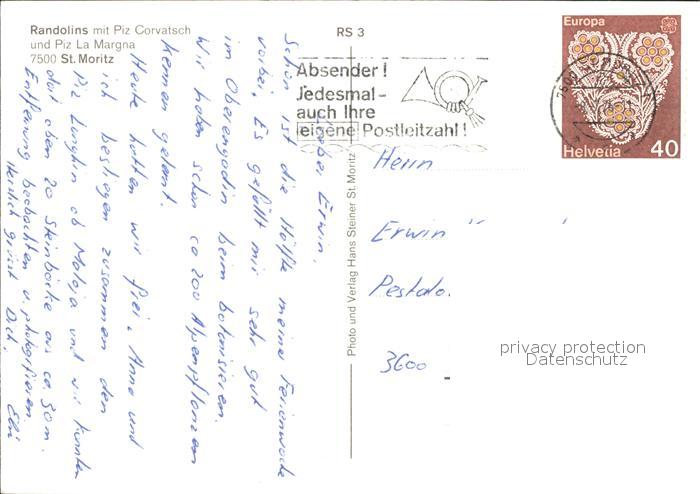 Randolins mit Piz Corvatsch
und Piz La Margna
7500 St. Moritz
RS 3
Absender!
Jedesmal-
auch Ihre
eigene Postleitzahl!
Europa
Helvetia 40
7500
Photo und Verlag Hans Steiner St. Moritz
Lieber Erwin,
Schon ist die Hälfte meine Ferienwoche
vorbei. Es gefällt mir sehr gut
im Oberengadin beim botanisieren.
Wir haben schon ca 200 Alpenpflanzen
kennen gelernt.
Heute hatten wir frei. Anna und
ich bestiegen zusammen den
Piz Lunghin ob Maloja und wir konnten
dort oben 20 Steinböcke aus ca. 50m.
Entfernung beobachten u. photografieren.
Herzlich grüsst Dich,
Elsi
Herrn
Erwin
Pestalo.
3600
privacy protection
Datenschutz